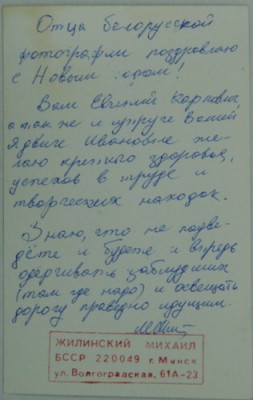 Отца белорусской
фотографии поздравляю
с Новым годом!
Вам Евгений Карлович,
а так же и супруге Вашей
Ядвиге Ивановне же-
лаю крепкого здоровья,
успехов в труде и
творческих находок.
Знаю, что не подве-
дёте и будете и впредь
одёргивать заблудших
(там где надо) и освещать
дорогу праведно идущим.
ЖИЛИНСКИЙ МИХАИЛ
БССР 220049 г. Минск
ул. Волгоградская, 61А-23